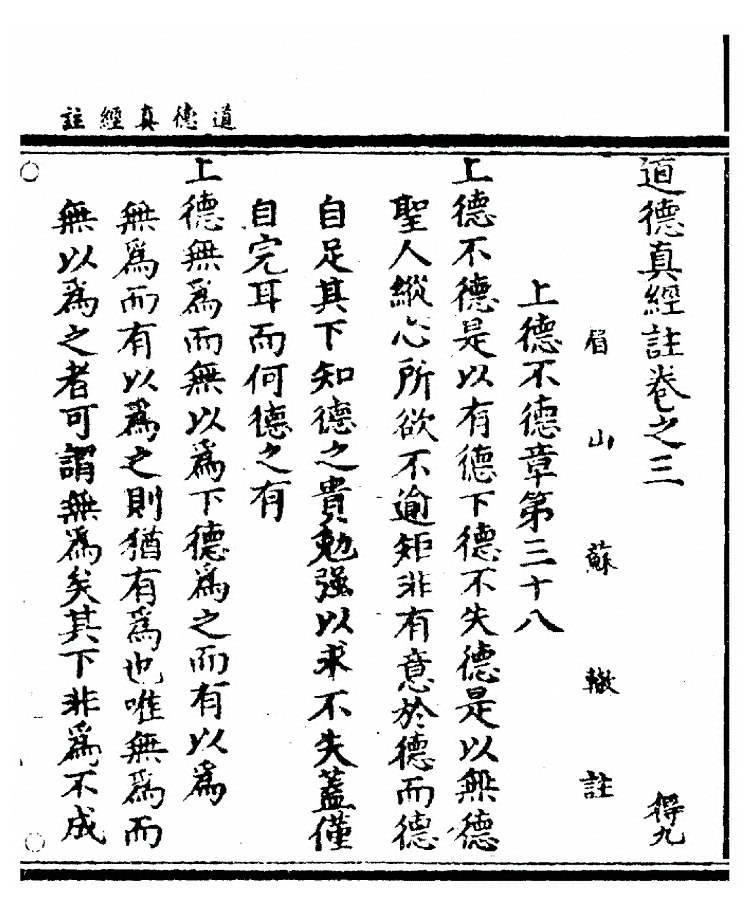 道德真經註
道德真經註卷之三 得九
眉山蘇轍註
上德不德章第三十八
上德不德是以有德下德不失德是以無德
聖人縱心所欲不逾矩非有意於德而德
自足其下知德之貴勉强以求不失蓋僅
自完耳而何德之有
上德無為而無以為下德為之而有以為
無為而有以為之則猶有為也唯無為而
無以為之者可謂無為矣其下非為不成